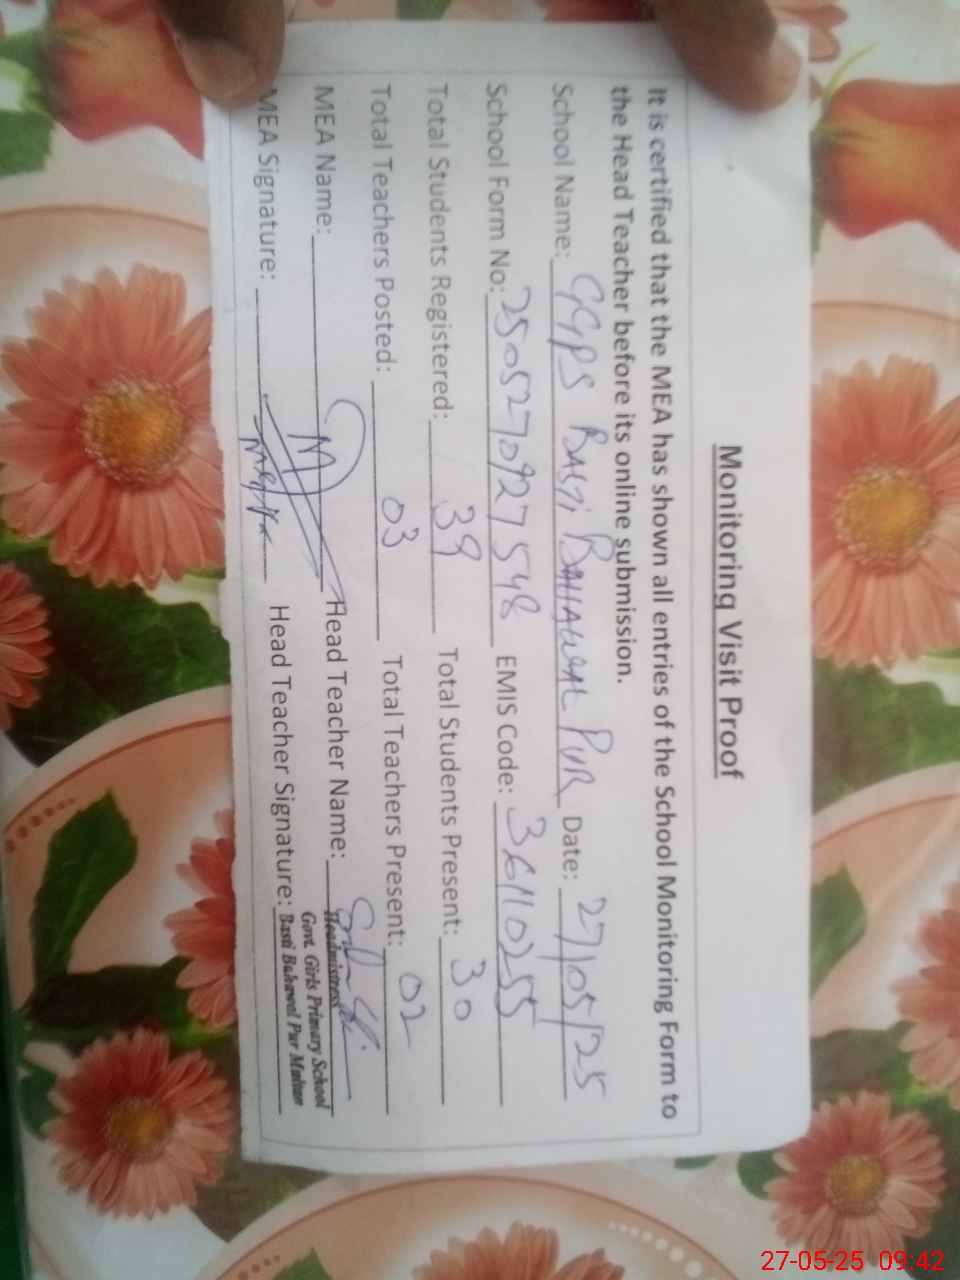 Monitoring Visit Proof
It is certified that the MEA has shown all entries of the School Monitoring Form to
the Head Teacher before its online submission.
School Name: GGPS BASTI BAHAWAL PUR Date: 27/05/25
School Form No: 2505270927548 EMIS Code: 36110255
Total Students Registered: 39 Total Students Present: 30
Total Teachers Posted: 03 Total Teachers Present: 02
MEA Name: Head Teacher Name:
MEA Signature: Head Teacher Signature:
Headmistress
Govt. Girls Primary School
Basti Bahawal Pur Multan
27-05-25 09:42